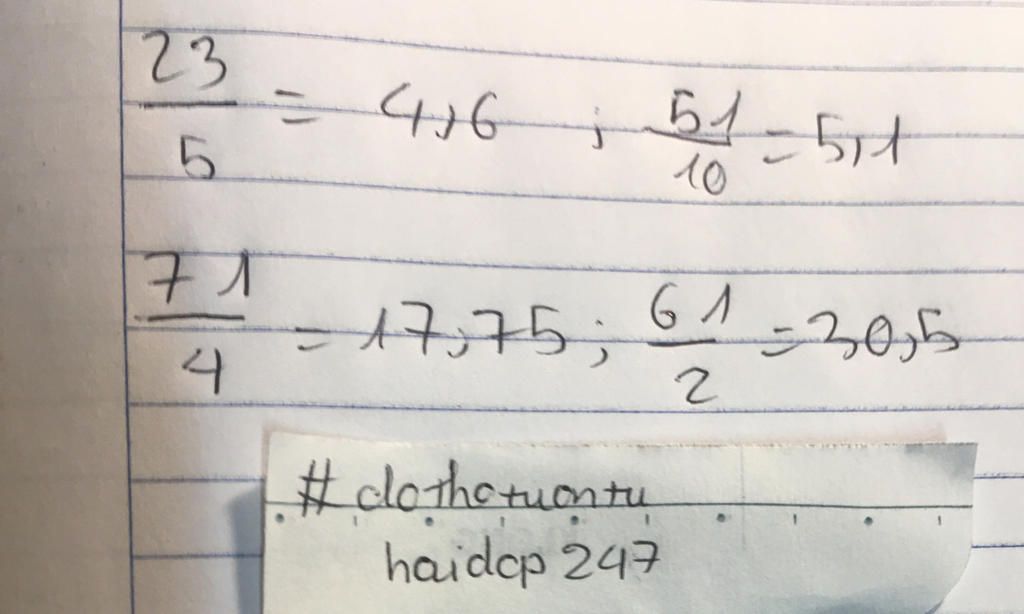 23/5 = 4,6 ; 51/10 = 5,1
71/4 = 17,75 ; 61/2 = 30,5
# dothotuontu
haidcp 247